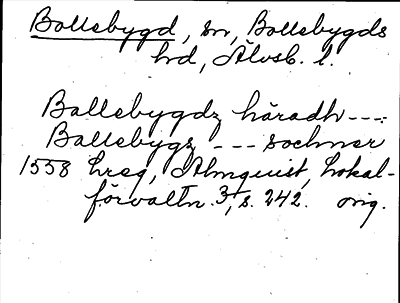 Bollebygd, sn, Bollebygds
hd, Älvsb. l.
Ballebygdz häradh ---:
Ballebygz --- sochner
1558 hreg, Almquist, Lokal-
förvaltn. 3, s. 242. orig.